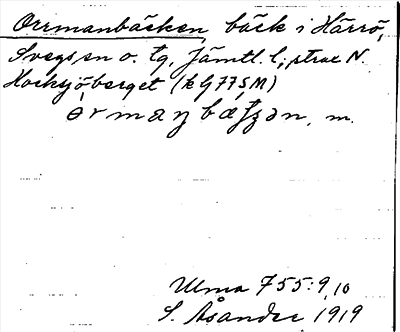 Orrmanbäcken, bäck i Härrö,
Svegs sn o. tg, Jämtl. l; strax N.
Hocksjöberget (k G 77 S M)
ơrmaŋbæʈʂən, m.
Ulma 755:9,10
S. Åsander 1919